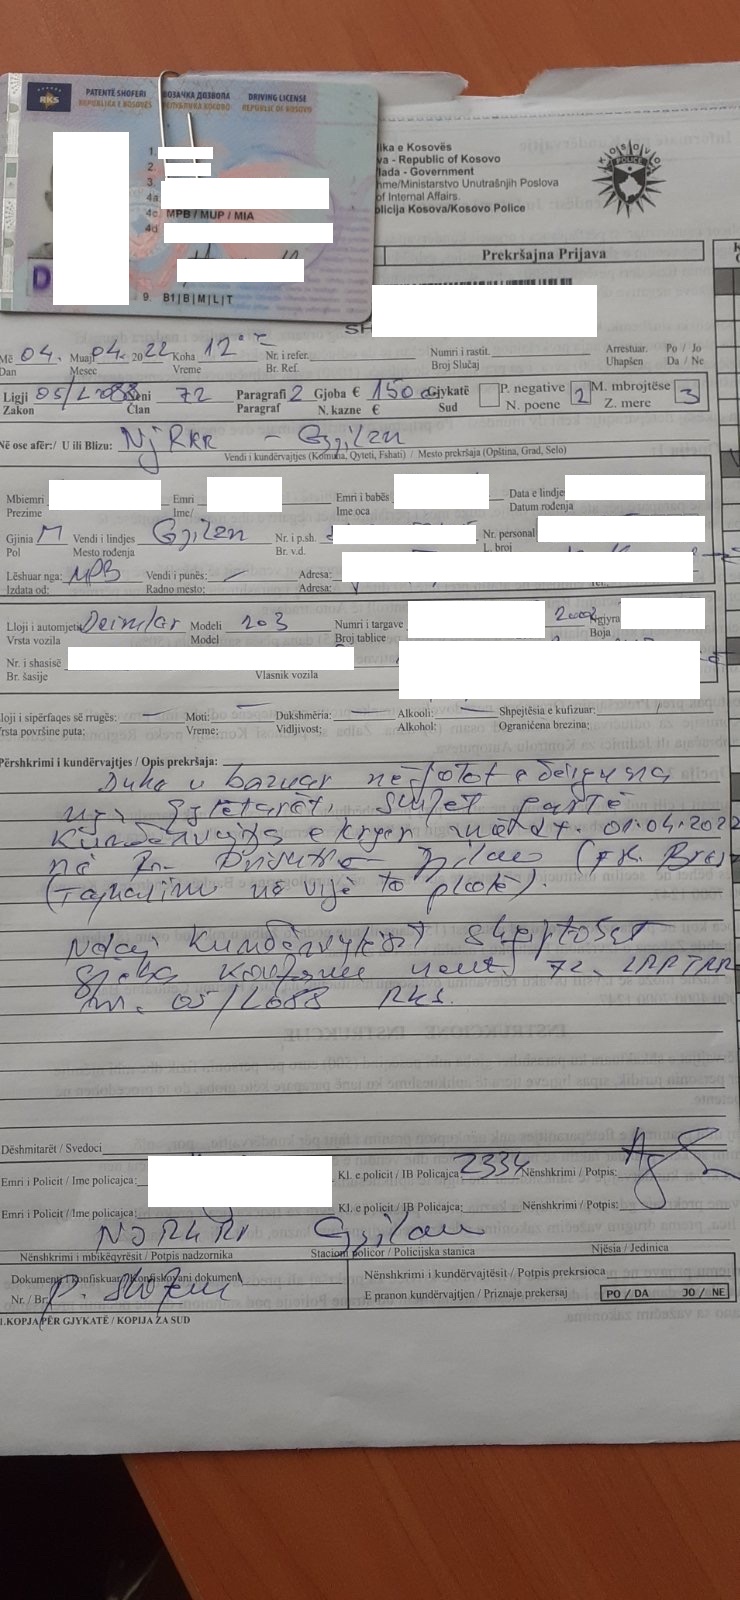 RKS
PATENTË SHOFERI ВОЗАЧКА ДОЗВОЛА DRIVING LICENSE
REPUBLIKA E KOSOVËS РЕПУБЛИКА КОСОВО REPUBLIC OF KOSOVO
1.
2.
3.
4a.
4c. MPB / MUP / MIA
4d.
9. B1|B|M|L|T
D
lika e Kosovës
va - Republic of Kosovo
lada - Government
me/Ministarstvo Unutrašnjih Poslova
of Internal Affairs.
olicija Kosova/Kosovo Police
KOSOVO
POLICE
Prekršajna Prijava
SH
Më 04. Muaj 04. 2022 Koha 12 Nr. i refer. Numri i rastit. Arrestuar. Po / Jo
Dan Mesec Vreme Br. Ref. Broj Slučaj Uhapšen Da / Ne
Ligji 05/L-088 Neni 72 Paragrafi 2 Gjoba € 150 Gjykatë P. negative 2 M. mbrojtëse 3
Zakon Član Paragraf N. kazne € Sud N. poene Z. mere
Në ose afër:/ U ili Blizu: NjRKR - Gjilan
Vendi i kundërvajtjes (Komuna, Qyteti, Fshati) / Mesto prekršaja (Opština, Grad, Selo)
Mbiemri Emri Emri i babës Data e lindjes
Prezime Ime/ Ime oca Datum rođenja
Gjinia M Vendi i lindjes Gjilan Nr. i p.sh. Nr. personal
Pol Mesto rođenja Br. v.d. L. broj
Lëshuar nga: MPB Vendi i punës: Adresa:
Izdata od: Radno mesto: Adresa:
Lloji i automjetit Deimlar Modeli 203 Numri i targave 2002 Ngjyra
Vrsta vozila Model Broj tablice Boja
Nr. i shasisë
Br. šasije Vlasnik vozila
loji i sipërfaqes së rrugës: Moti: Dukshmëria: Alkooli: Shpejtësia e kufizuar:
rsta površine puta: Vreme: Vidljivost: Alkohol: Ograničena brezina:
Përshkrimi i kundërvajtjes / Opis prekršaja:
Duke u bazuar në fotot e dërguara
nga qytetarët, shihet qartë
Kundërvajtja e kryer më dt. 01.04.2022
në Rr. Gjilan
(Tejkalim në vijë të plotë).
Ndaj Kundërvajtësit shqiptohet
gjoba konform nenit 72. LRRTRR
nr. 05/L088 RKS.
Dëshmitarët / Svedoci
Emri i Policit / Ime policajca: Kl. e policit / IB Policajca: 2334 Nënshkrimi / Potpis:
Emri i Policit / Ime policajca: Kl. e policit / IB Policajca: Nënshkrimi / Potpis:
NJRKRR Gjilan
Nënshkrimi i mbikëqyrësit / Potpis nadzornika Stacioni policor / Policijska stanica Njësia / Jedinica
Dokumenti i konfiskuar / Konfiskovani dokument Nënshkrimi i kundërvajtësit / Potpis prekrsioca
Nr. / Br. P. Shoferi E pranon kundërvajtjen / Priznaje prekersaj PO / DA JO / NE
I.KOPJA PËR GJYKATË / KOPIJA ZA SUD